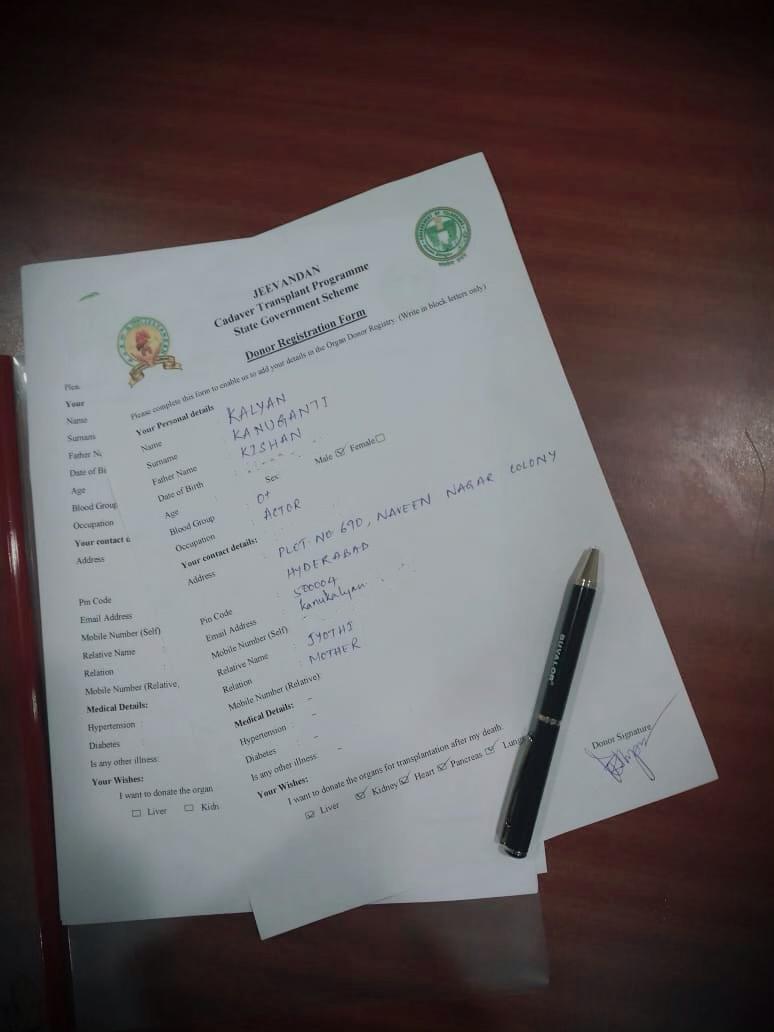 JEEVANDAN
Cadaver Transplant Programme
State Government Scheme
Donor Registration Form
Please complete this form to enable us to add your details in the Organ Donor Registry. (Write in block letters only)
Your Personal details
Name KALYAN
Surname KANUGANTI
Father Name : KISHAN
Date of Birth
Sex Male Female
Age
Blood Group O+
Occupation ACTOR
Your contact details:
Address : PLOT NO 690, NAVEEN NAGAR COLONY
HYDERABAD
Pin Code 500004
Email Address kanukalyan
Mobile Number (Self)
Relative Name JYOTHI
Relation : MOTHER
Mobile Number (Relative)
Medical Details:
Hypertension : -
Diabetes : -
Is any other illness: -
Your Wishes:
I want to donate the organs for transplantation after my death:
Liver Kidney Heart Pancreas Lungs
Donor Signature
Plea
Your
Name
Surnam
Father N
Date of Bi
Age
Blood Group
Occupation
Your contact
Address
Pin Code
Email Address
Mobile Number (Self)
Relative Name
Relation
Mobile Number (Relative,
Medical Details:
Hypertension :
Diabetes :
Is any other illness:
Your Wishes:
I want to donate the organ
Liver Kidn